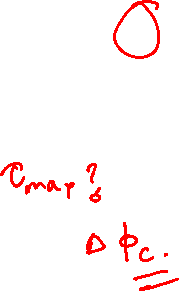 τmax?
Δ ϕc.